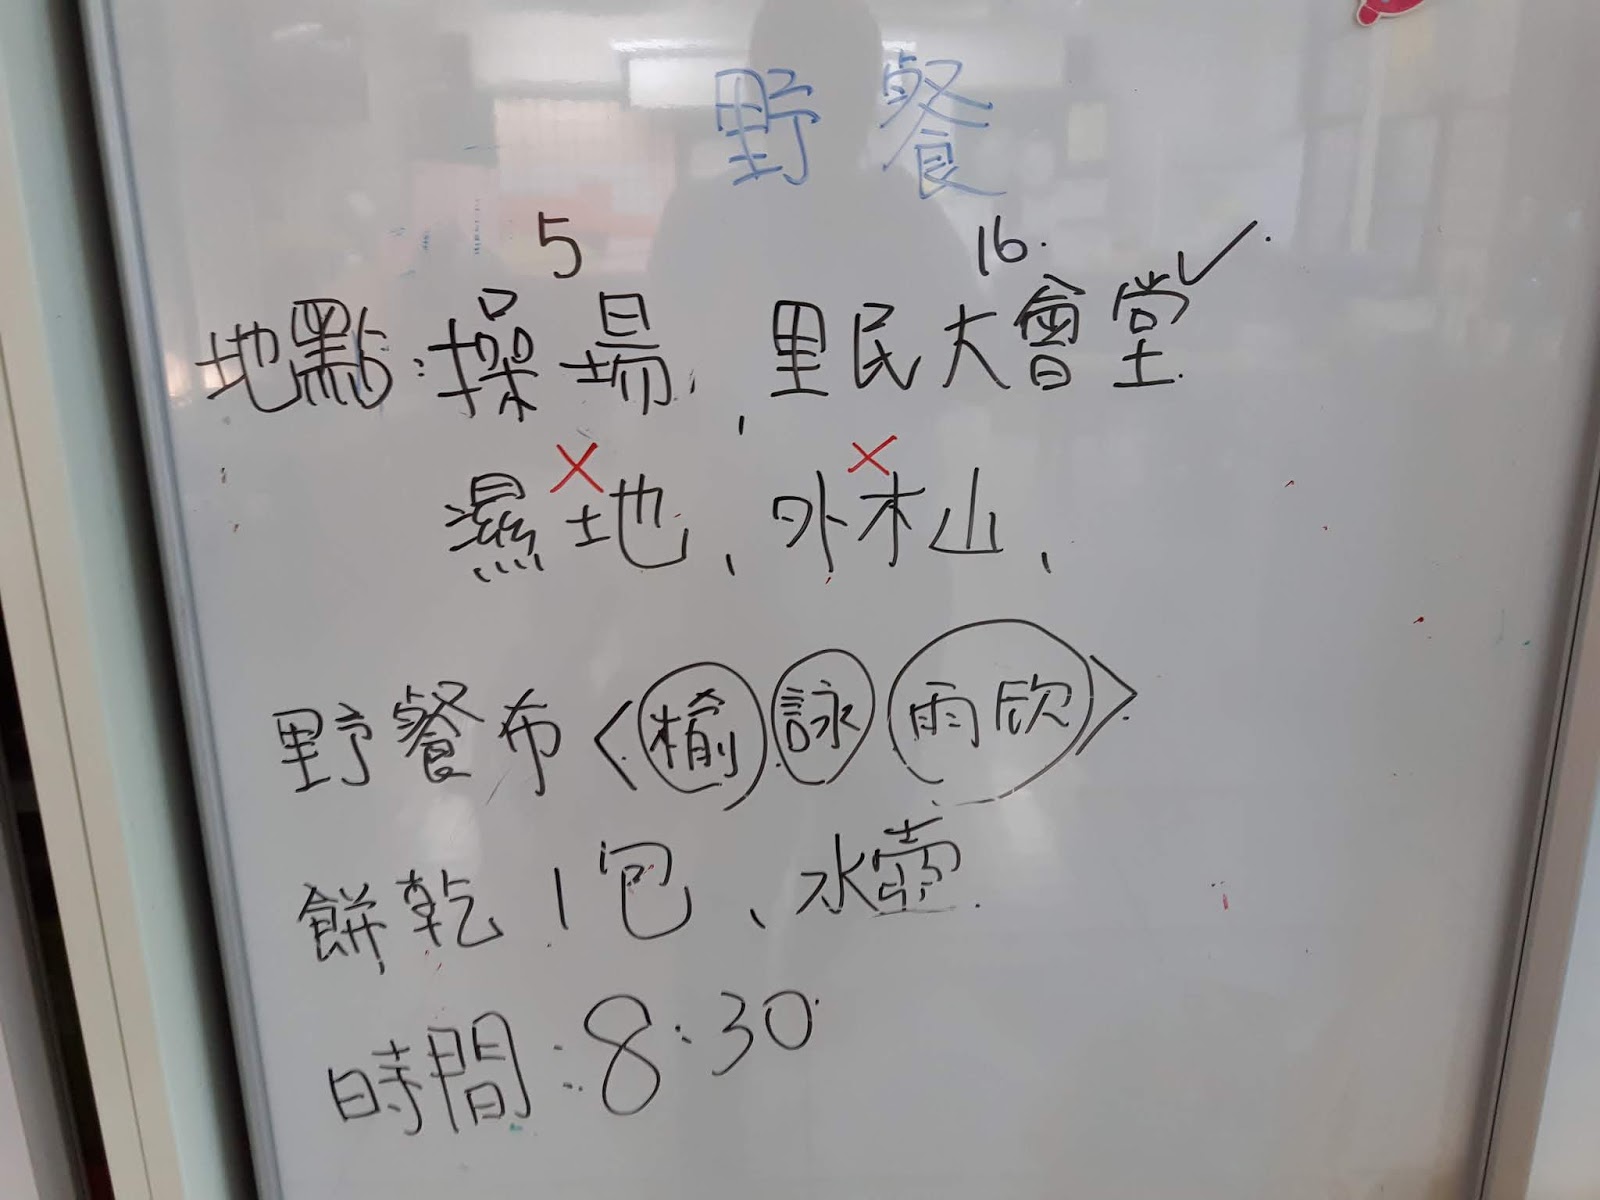 野餐
5 16.
地點:操場、里民大會堂✓
濕地、外木山、
野餐布<榆 詠 雨欣>
餅乾1包、水壺
時間:8:30